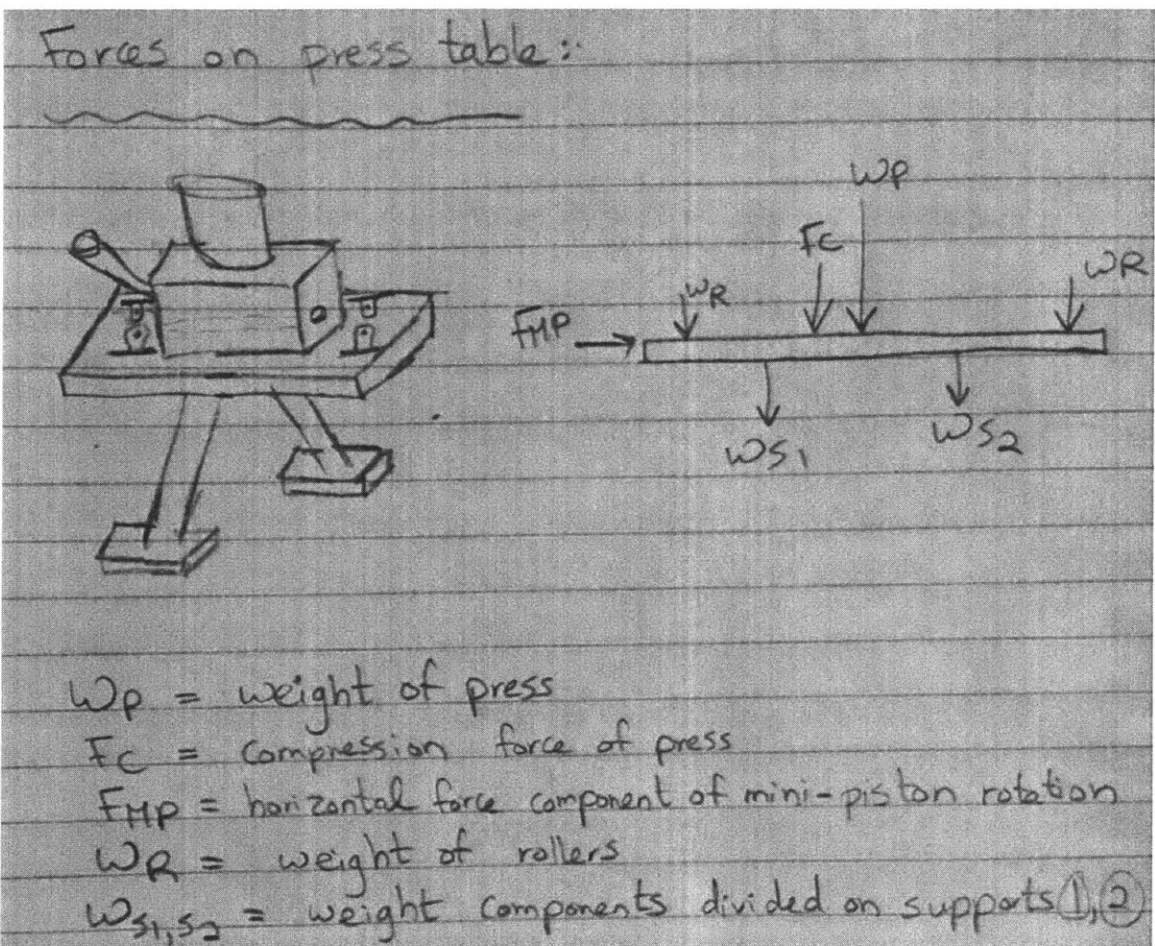 Forces on press table:
WP
FC
WR
WR
FMP
WS1
WS2
WP = weight of press
FC = Compression force of press
FMP = horizontal force component of mini-piston rotation
WR = weight of rollers
WS1,S2 = weight components divided on supports ①,②